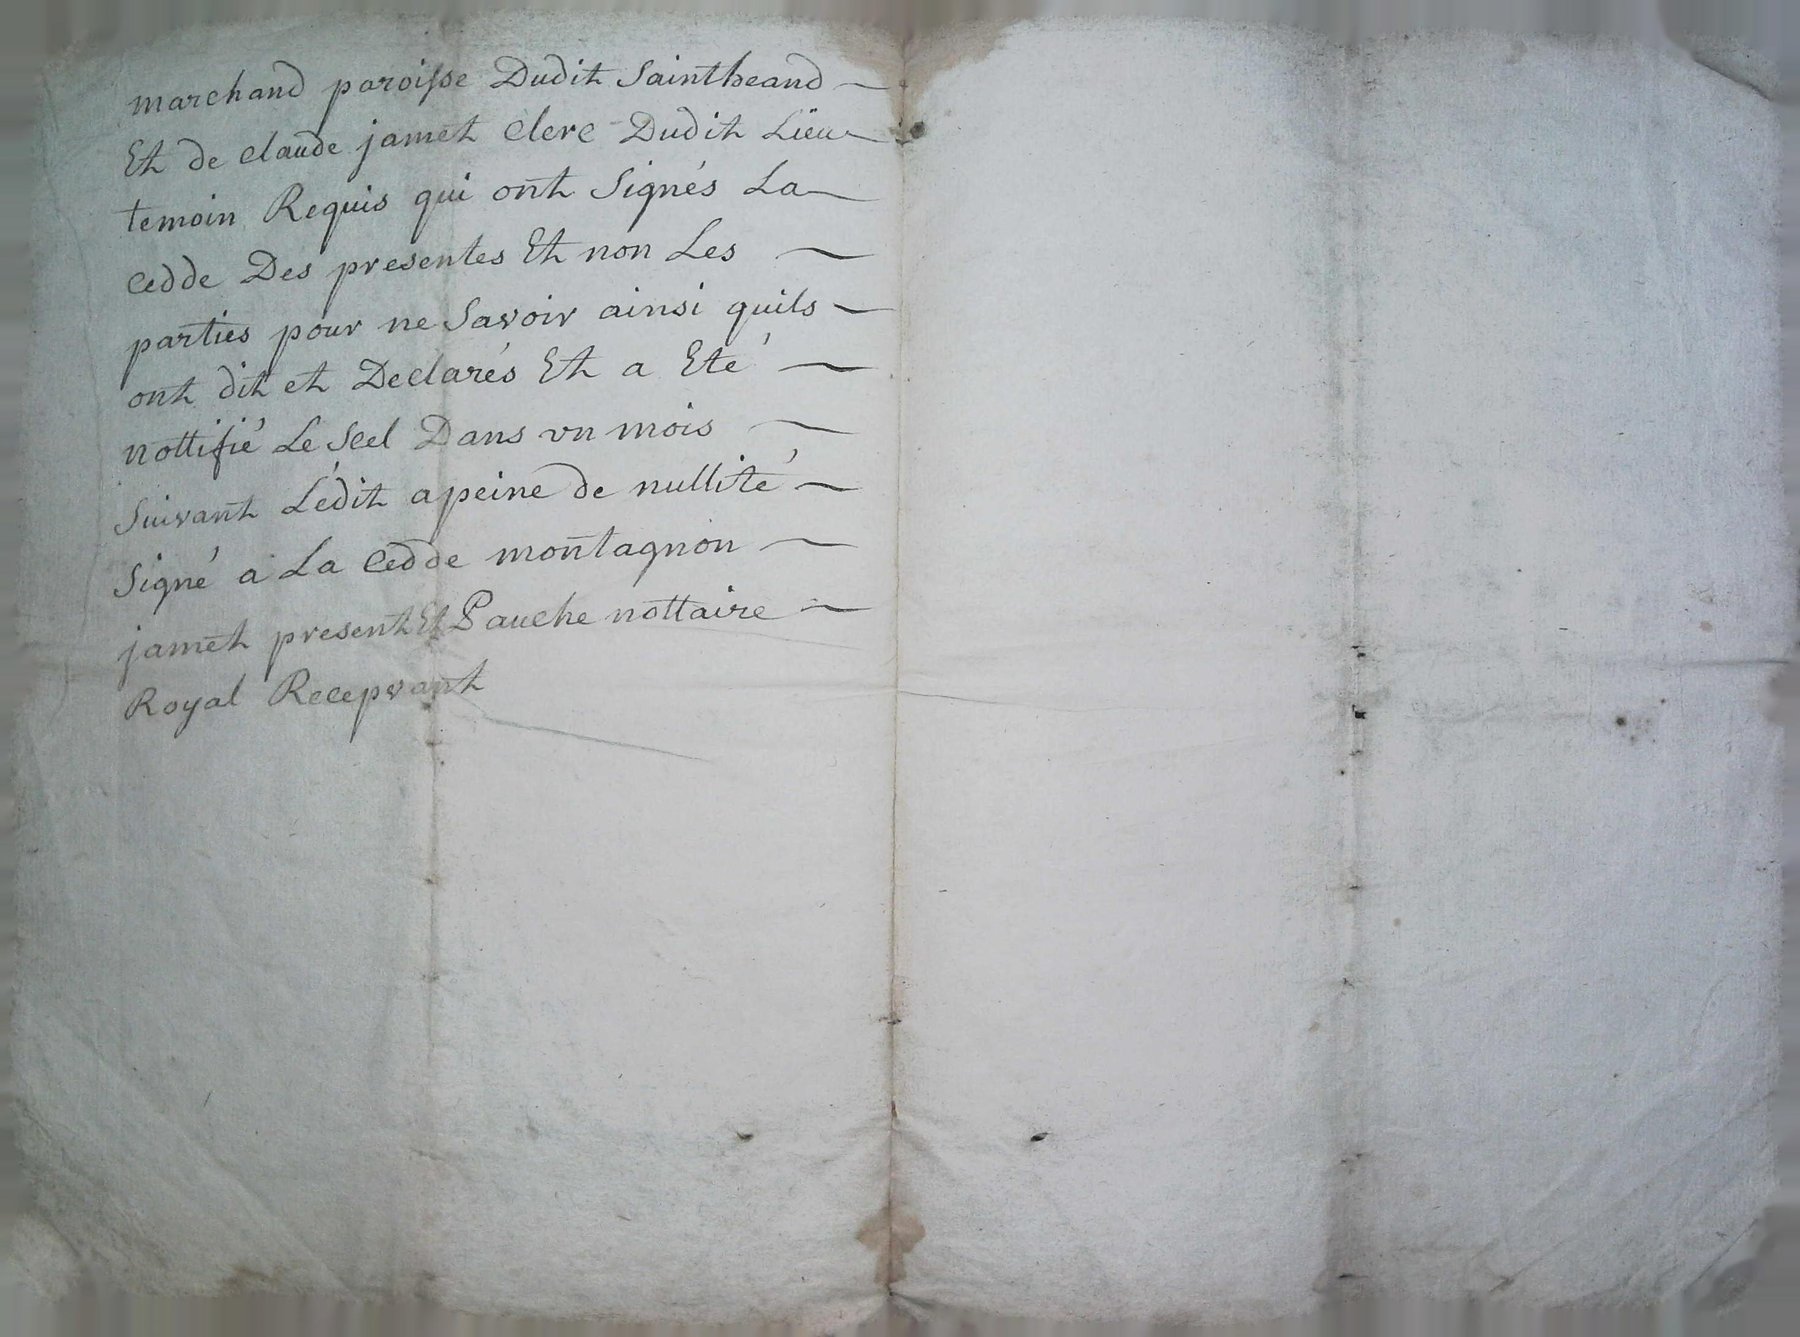 marchand paroisse Dudit Saintheand
Et de claude jamet Clerc Dudit Lieu
temoin Requis qui ont Signés La
Cedde Des presentes Et non Les
parties pour ne Savoir ainsi quils
ont dit et Declarés Et a Eté
nottifié Le Scel Dans un mois
Suivant L'édit a peine de nullité
Signé a La Cedde montagnon
jamet present Et Pauche nottaire
Royal Recepvant